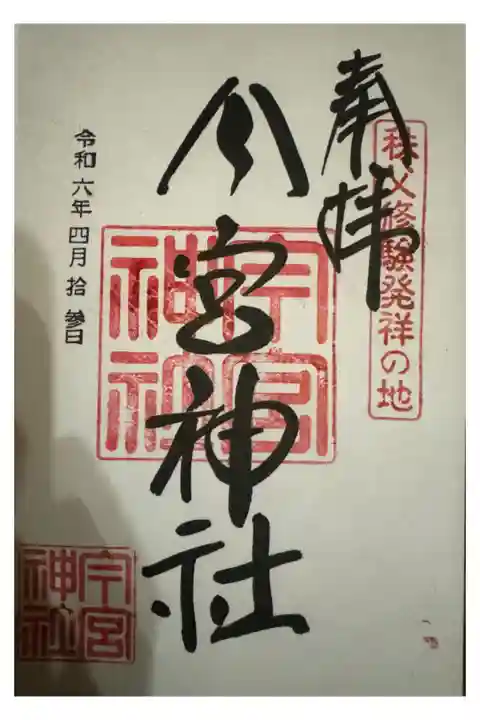 奉拝
秩父修験発祥の地
今宮神社
今宮神社
令和六年四月拾參日
今宮神社